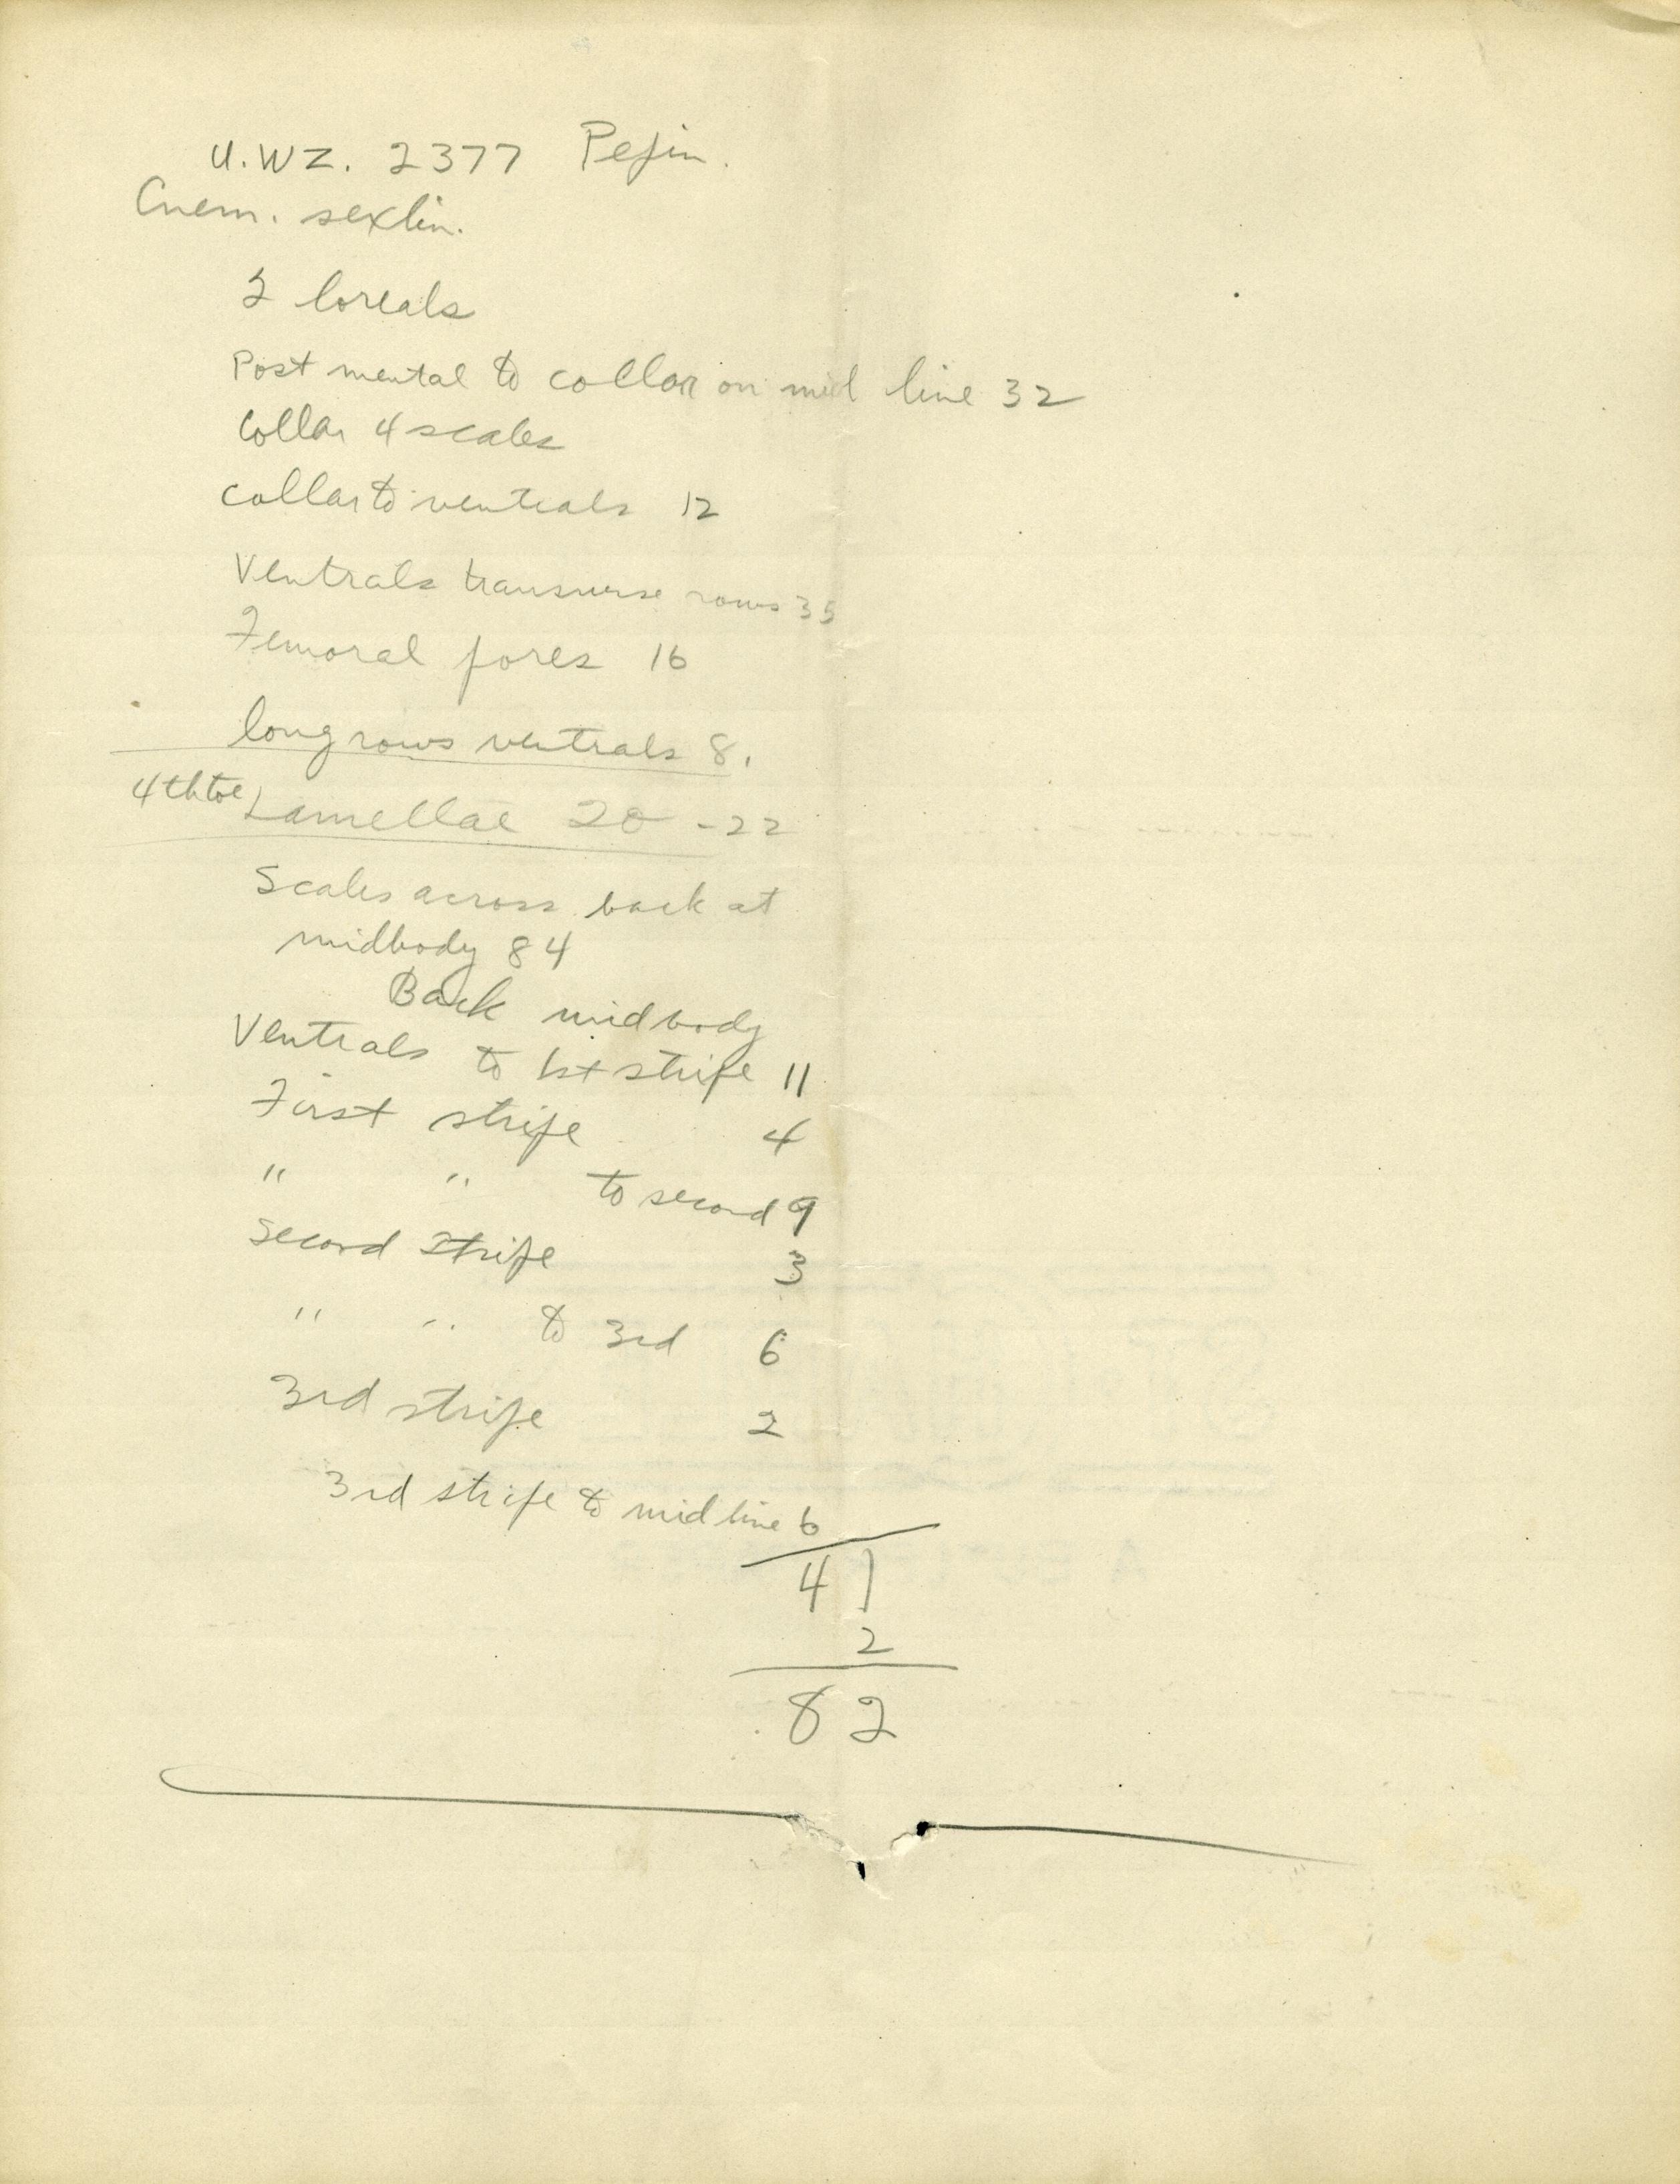 U.WZ. 2377 Pepin.
Cnem. sexlin.
2 loreals
Post mental to collar on mid line 32
Collar 4 scales
collar to ventrals 12
Ventrals transverse rows 35
Femoral pores 16
long rows ventrals 8.
4th toe Lamellae 20 - 22
Scales across back at
midbody 84
Back midbody
Ventrals to 1st stripe 11
First stripe 4
" " to second 9
Second stripe 3
" " to 3rd 6
3rd stripe 2
3rd stripe to mid line 6
41
2
82